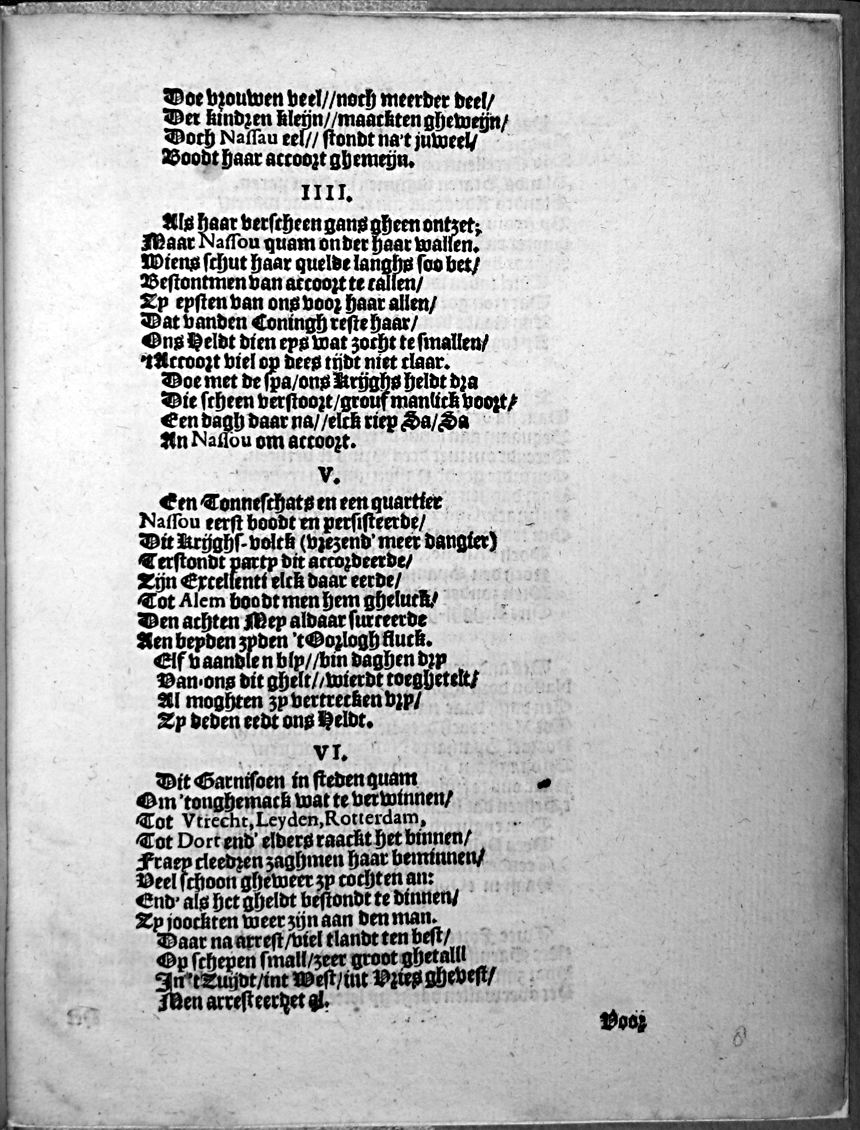 Doe vrouwen veel//noch meerder deel/
Der kindren kleijn//maackten gheweijn/
Doch Nassau eel// stondt na't juweel/
Boodt haar accoort ghemeijn.
IIII.
Als haar verscheen gans gheen ontzet;
Maar Nassou quam onder haar wallen.
Wiens schut haar quelde langhs soo bet/
Bestontmen van accoort te callen/
Zy eysten van ons voor haar allen/
Dat vanden Coningh reste haar/
Ons Heldt dien eys wat zocht te smallen/
'tAccoort viel op dees tijdt niet claar.
Doe met de spa/ons krijghs heldt dra
Die scheen verstoort/grouf manlick voort/
Een dagh daar na//elck riep Sa/Sa
An Nassou om accoort.
V.
Een Tonneschats en een quartier
Nassou eerst boodt en persisteerde/
Dit krijghs-volck (vrezend' meer dangier)
Terstondt party dit accordeerde/
Zijn Excellenti elck daar eerde/
Tot Alem boodt men hem gheluck/
Den achten Mey aldaar surceerde
Aen beyden zyden 't Oorlogh fluck.
Elf vaandlen bly//bin daghen dry
Van ons dit ghelt//wierdt toeghetelt/
Al moghten zy vertrecken vry/
Zy deden eedt ons Heldt.
VI.
Dit Garnisoen in steden quam
Om 'tonghemack wat te verwinnen/
Tot Vtrecht, Leyden, Rotterdam,
Tot Dort end' elders raackt het binnen/
Fraey cleedren zaghmen haar beminnen/
Veel schoon gheweer zy cochten an:
End' als het gheldt bestondt te dinnen/
Zy joockten weer zijn aan den man.
Daar na arrest/viel tlandt ten best/
Op schepen small/zeer groot ghetalll
In 't Zuijdt/int West/int Vries ghevest/
Men arresteerdet al.
Voor
8